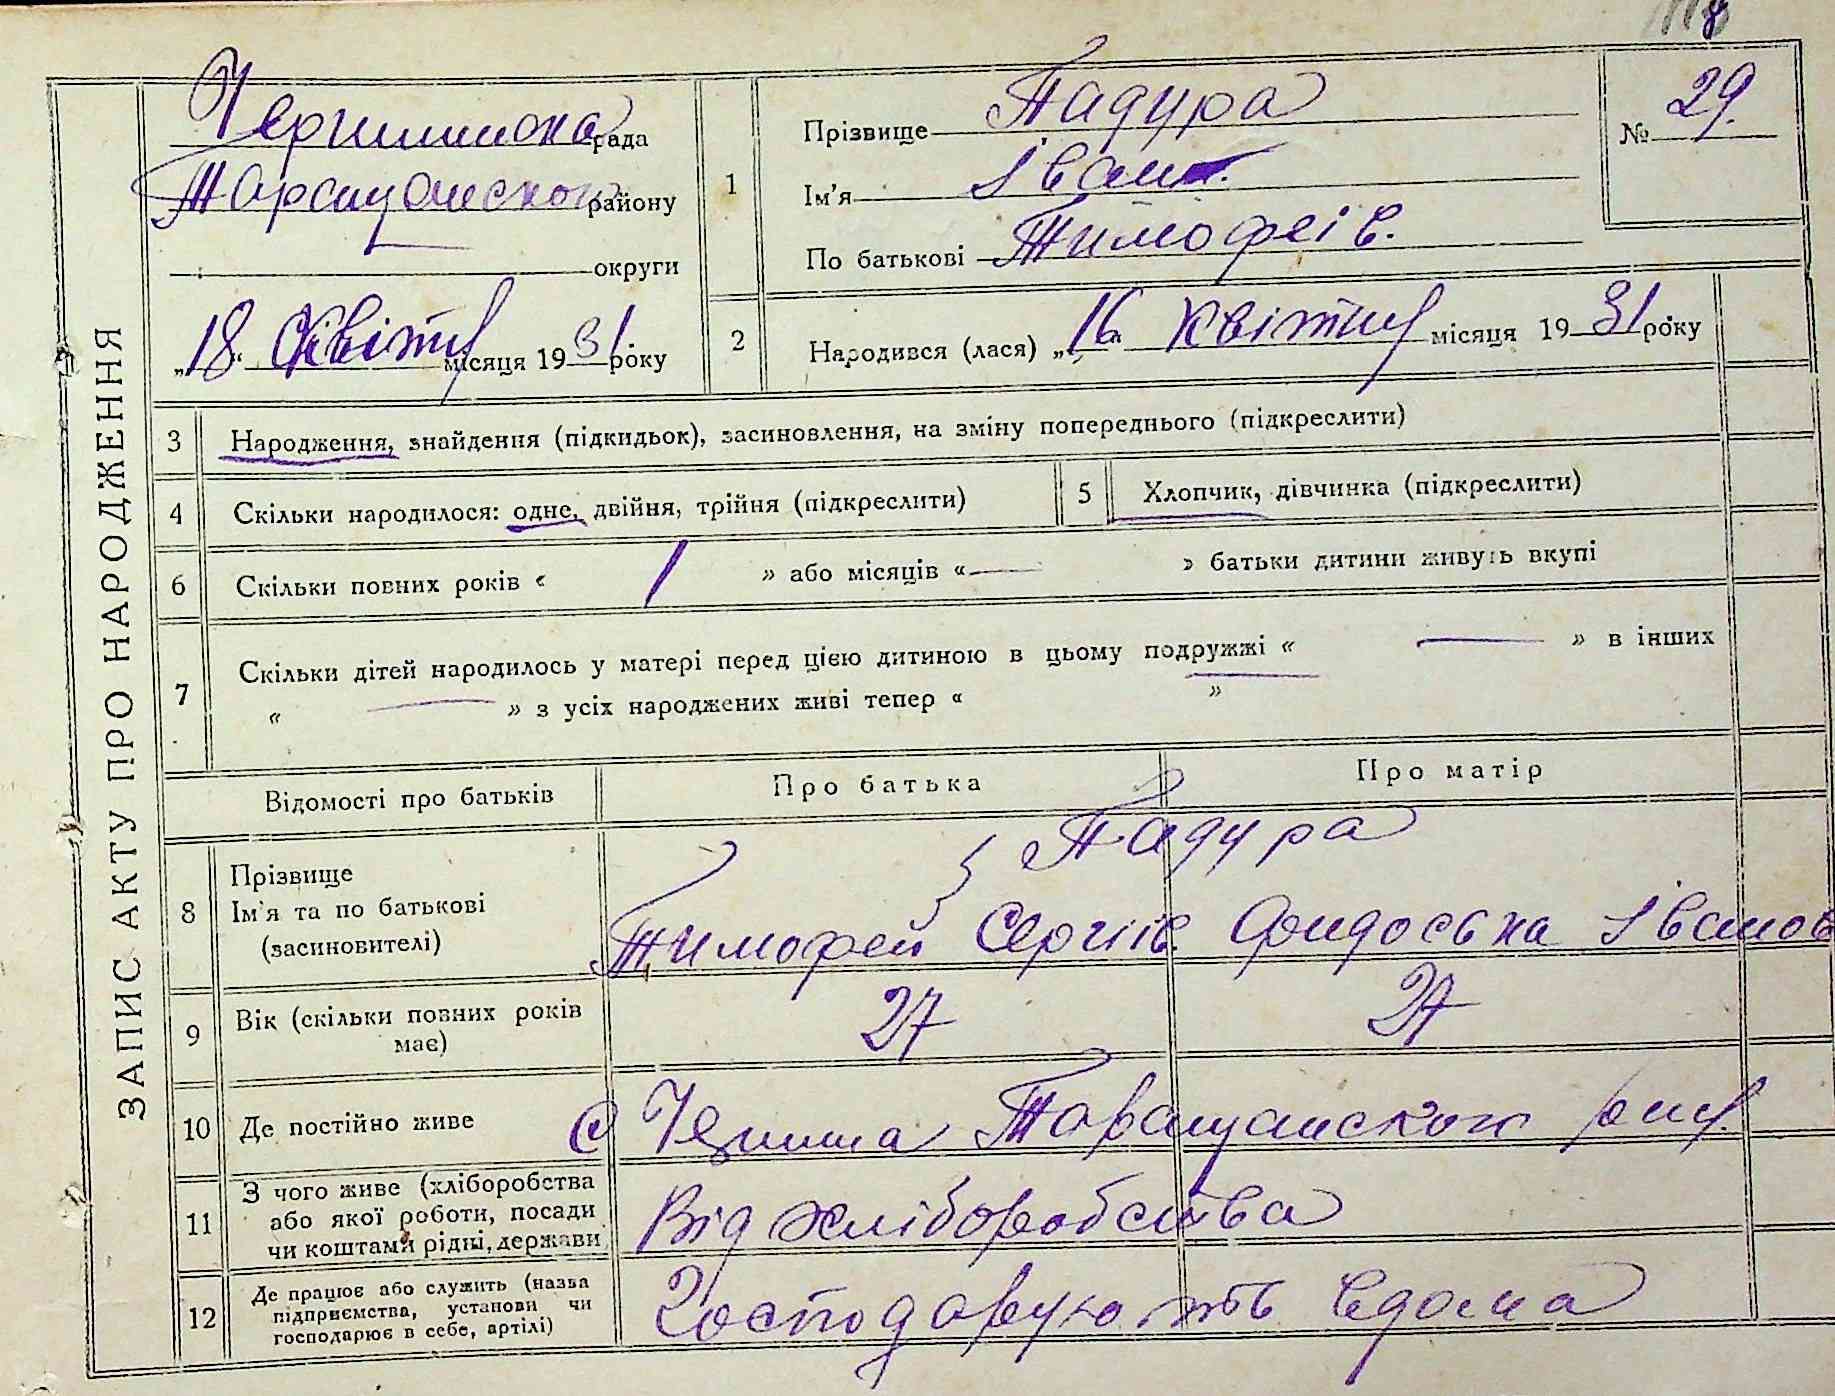 8
ЗАПИС АКТУ ПРО НАРОДЖЕННЯ
рада
Таращанського району
округи
„18“ Квітня місяця 1931 року
1
Прізвище Падура
Ім'я Іван.
По батькові Тимофеів.
№ 29.
2
Народився (лася) „16“ Квітня місяця 1931 року
3 Народження, знайдення (підкидьок), засиновлення, на зміну попереднього (підкреслити)
4 Скільки народилося: одне, двійня, трійня (підкреслити)
5 Хлопчик, дівчинка (підкреслити)
6 Скільки повних років « 1 » або місяців «—» батьки дитини живуть вкупі
7 Скільки дітей народилось у матері перед цією дитиною в цьому подружжі « — » в інших
« — » з усіх народжених живі тепер « — »
Відомості про батьків Про батька Про матір
8 Прізвище
Ім'я та по батькові
(засиновителі)
} Падура
Тимофей Сергіів. Іванов
9 Вік (скільки повних років
має)
27 27
10 Де постійно живе с Таращанського
11 З чого живе (хліборобства
або якої роботи, посади
чи коштами рідні, держави
Від хліборобства
12 Де працює або служить (назва
підприємства, установи чи
господарює в себе, артілі)
Господарують вдома